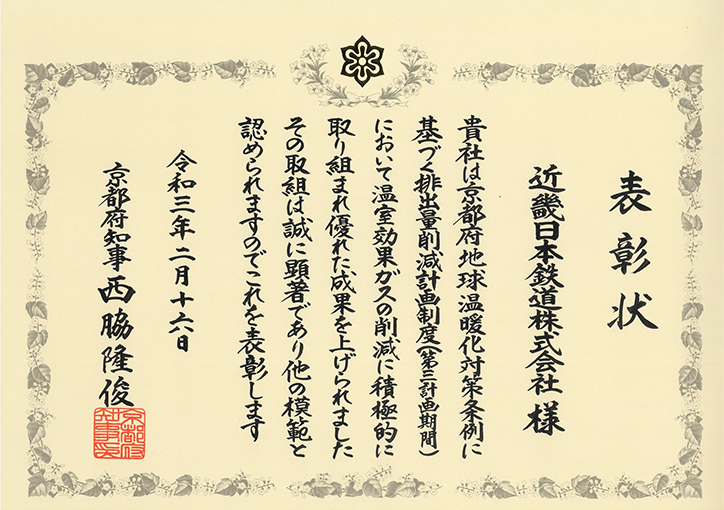 表彰状
近畿日本鉄道株式会社 様
貴社は京都府地球温暖化対策条例に
基づく排出量削減計画制度(第三計画期間)
において温室効果ガスの削減に積極的に
取り組まれ優れた成果を上げられました
その取組は誠に顕著であり他の模範と
認められますのでこれを表彰します
令和三年二月十六日
京都府知事 西脇隆俊
京都府知事印